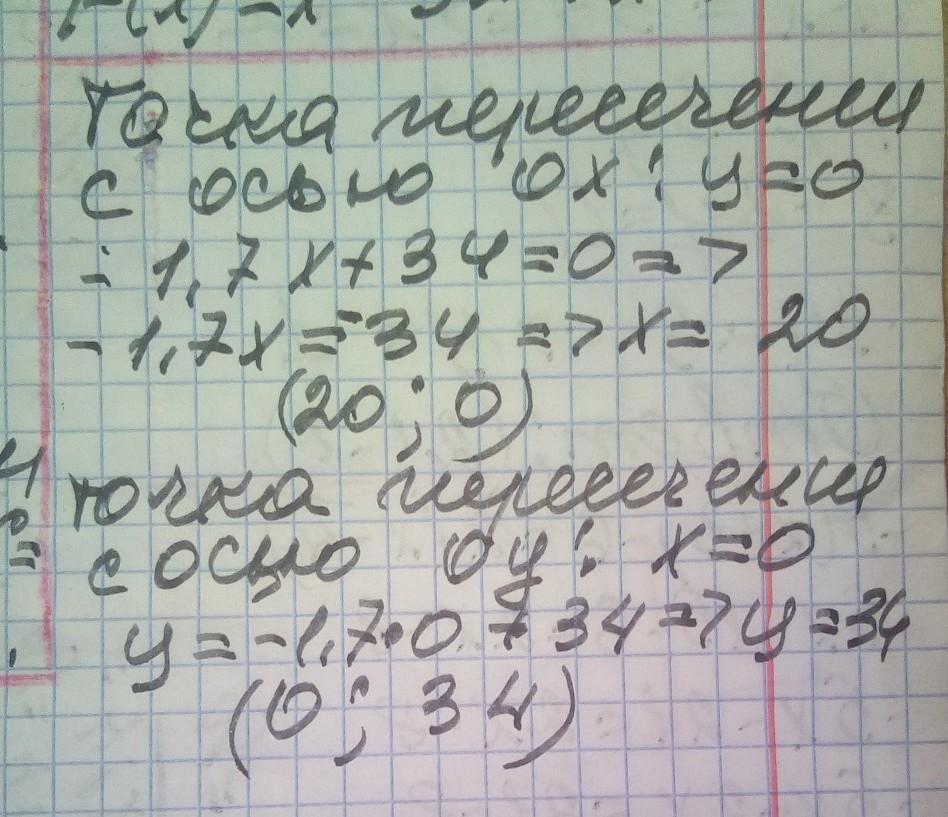 Точка пересечении
с осью ох: у=0
- 1,7х+34=0=>
- 1,7х=-34 => х= 20
(20; 0)
точка пересечении
с осцю оу: х=0
у=-1,7•0 +34=>у=34
(0; 34)